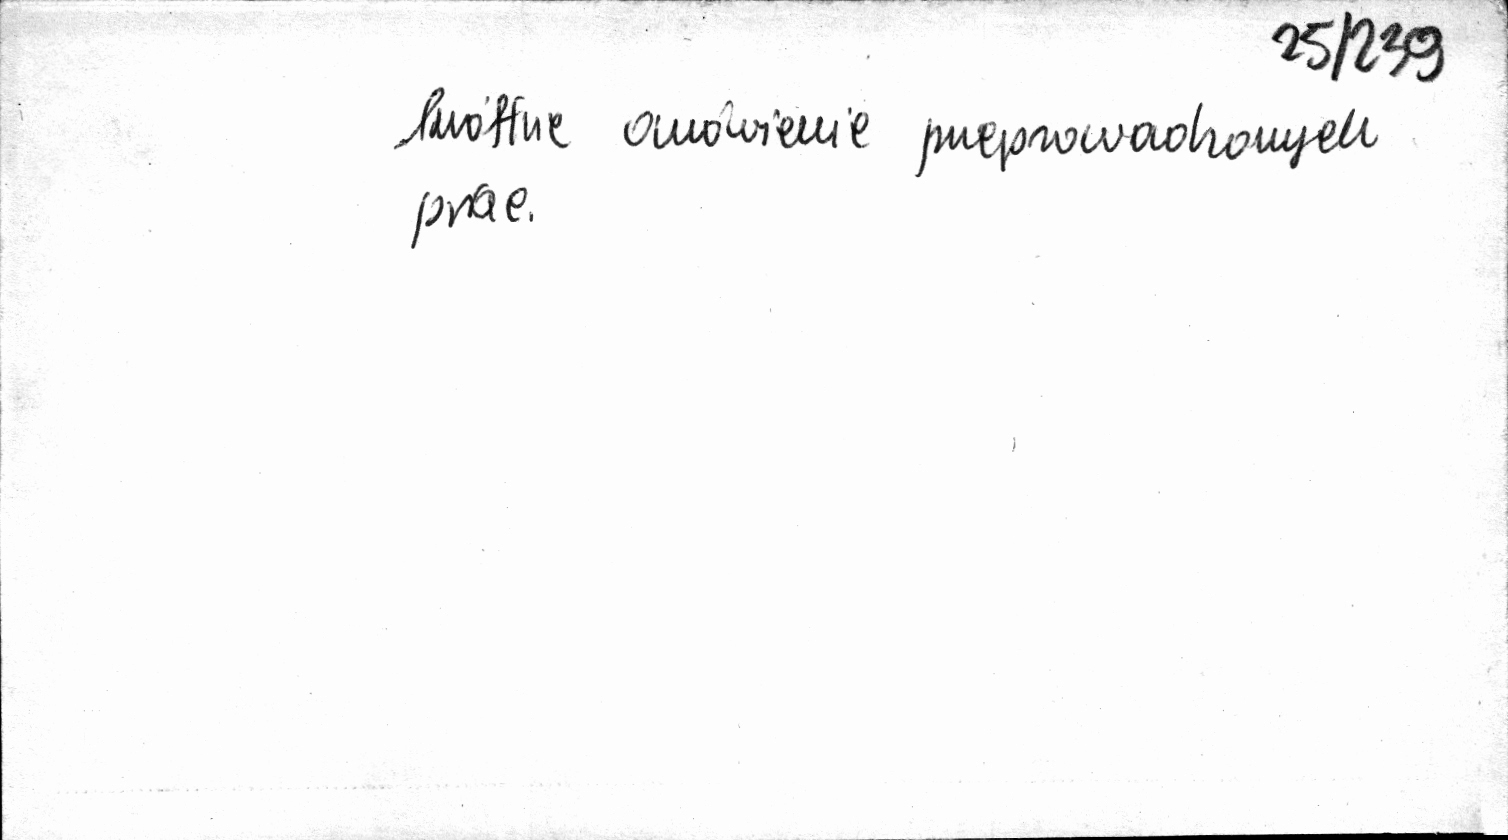 25/239
krótkie omówienie przeprowadzonych
prac.